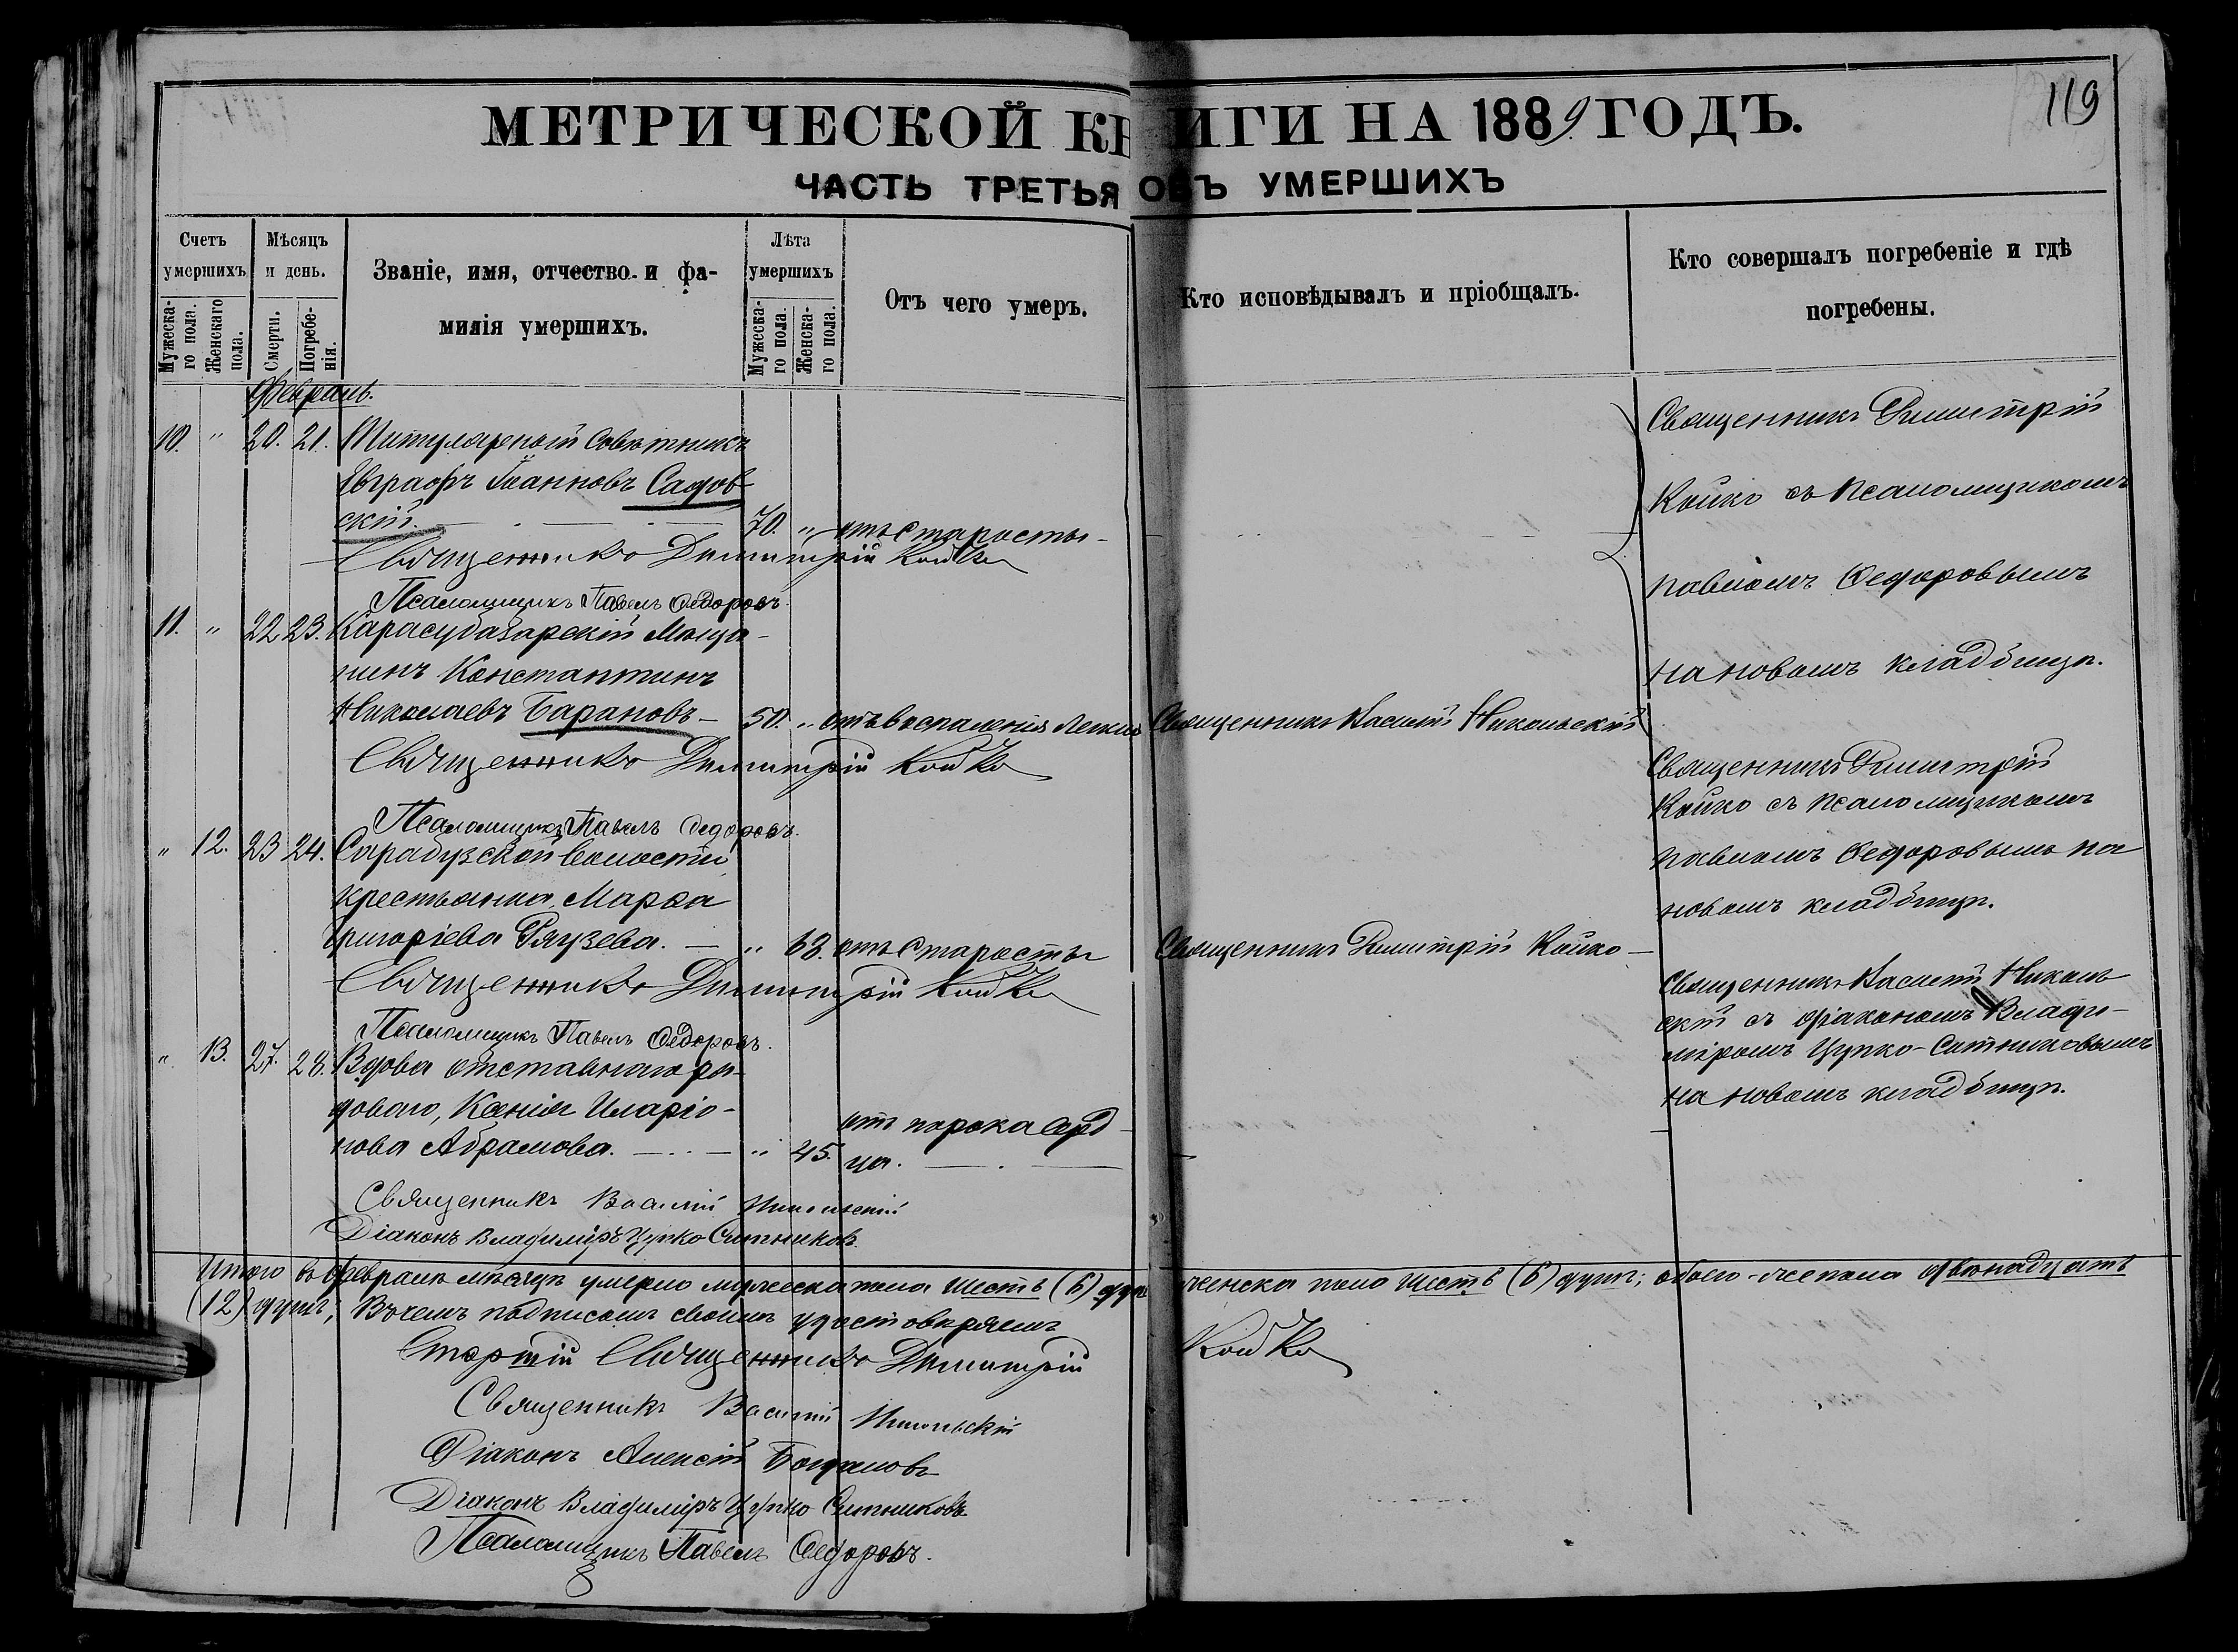 119
МЕТРИЧЕСКОЙ КНИГИ НА 1889 ГОДЪ.
ЧАСТЬ ТРЕТЬЯ ОБЪ УМЕРШИХЪ
Счетъ умершихъ.
Мужеска-го пола.
Женскаго пола.
Мѣсяцъ и день.
Смерти.
Погребе-нія.
Званіе, имя, отчество и фа-
милія умершихъ.
Лѣта умершихъ
Мужеска-го пола.
Женска-го пола.
Отъ чего умеръ.
Кто исповѣдывалъ и пріобщалъ.
Кто совершалъ погребеніе и гдѣ
погребены.
Февраль.
10. " 20. 21. Титулярный Совѣтникъ
Евграфъ Іоанновъ Садов-
скій. 70. " отъ старости
Священникъ Димитрій Койко
Псаломщикъ Павелъ Ѳедоровъ.
Священникъ Димитрій
Койко съ псаломщикомъ
Павломъ Ѳедоровымъ
на новомъ кладбищѣ.
11. " 22 23. Карасубазарскій Мѣща-
нинъ Константинъ
Николаевъ Барановъ 50. " отъ воспаленія легкихъ Священникъ Василій Никольскій
Священникъ Димитрій Койко
Псаломщикъ Павелъ Ѳедоровъ.
" 12. 23 24. Сарабузской волости
крестьянка Марѳа
Григоріева Рязева. " 63. отъ старости Священникъ Димитрій Койко
Священникъ Димитрій Койко
Псаломщикъ Павелъ Ѳедоровъ.
Священникъ Димитрій
Койко съ псаломщикомъ
Павломъ Ѳедоровымъ на
новомъ кладбищѣ.
" 13. 27. 28. Вдова отставнаго ря-
доваго, Ксенія Иларіо-
нова Абрамова. " 45. отъ порока серд-
ца.
Священникъ Василій Никольскій
Діаконъ Владиміръ Цупко Ситниковъ
Священникъ Василій Николь
скій съ діакономъ Влади-
міромъ Цупко-Ситниковымъ
на новомъ кладбищѣ.
Итого въ Февралѣ мѣсяцѣ умерло мужеска пола шесть (6) душъ женска пола шесть (6) душъ; обоего-же пола двѣнадцать
(12) душъ; въ чемъ подписомъ своимъ удостовѣряемъ
Старшій Священникъ Димитрій Койко
Священникъ Василій Никольскій
Діаконъ Алексій Богдановъ
Діаконъ Владиміръ Цупко Ситниковъ
Псаломщикъ Павелъ Ѳедоровъ.